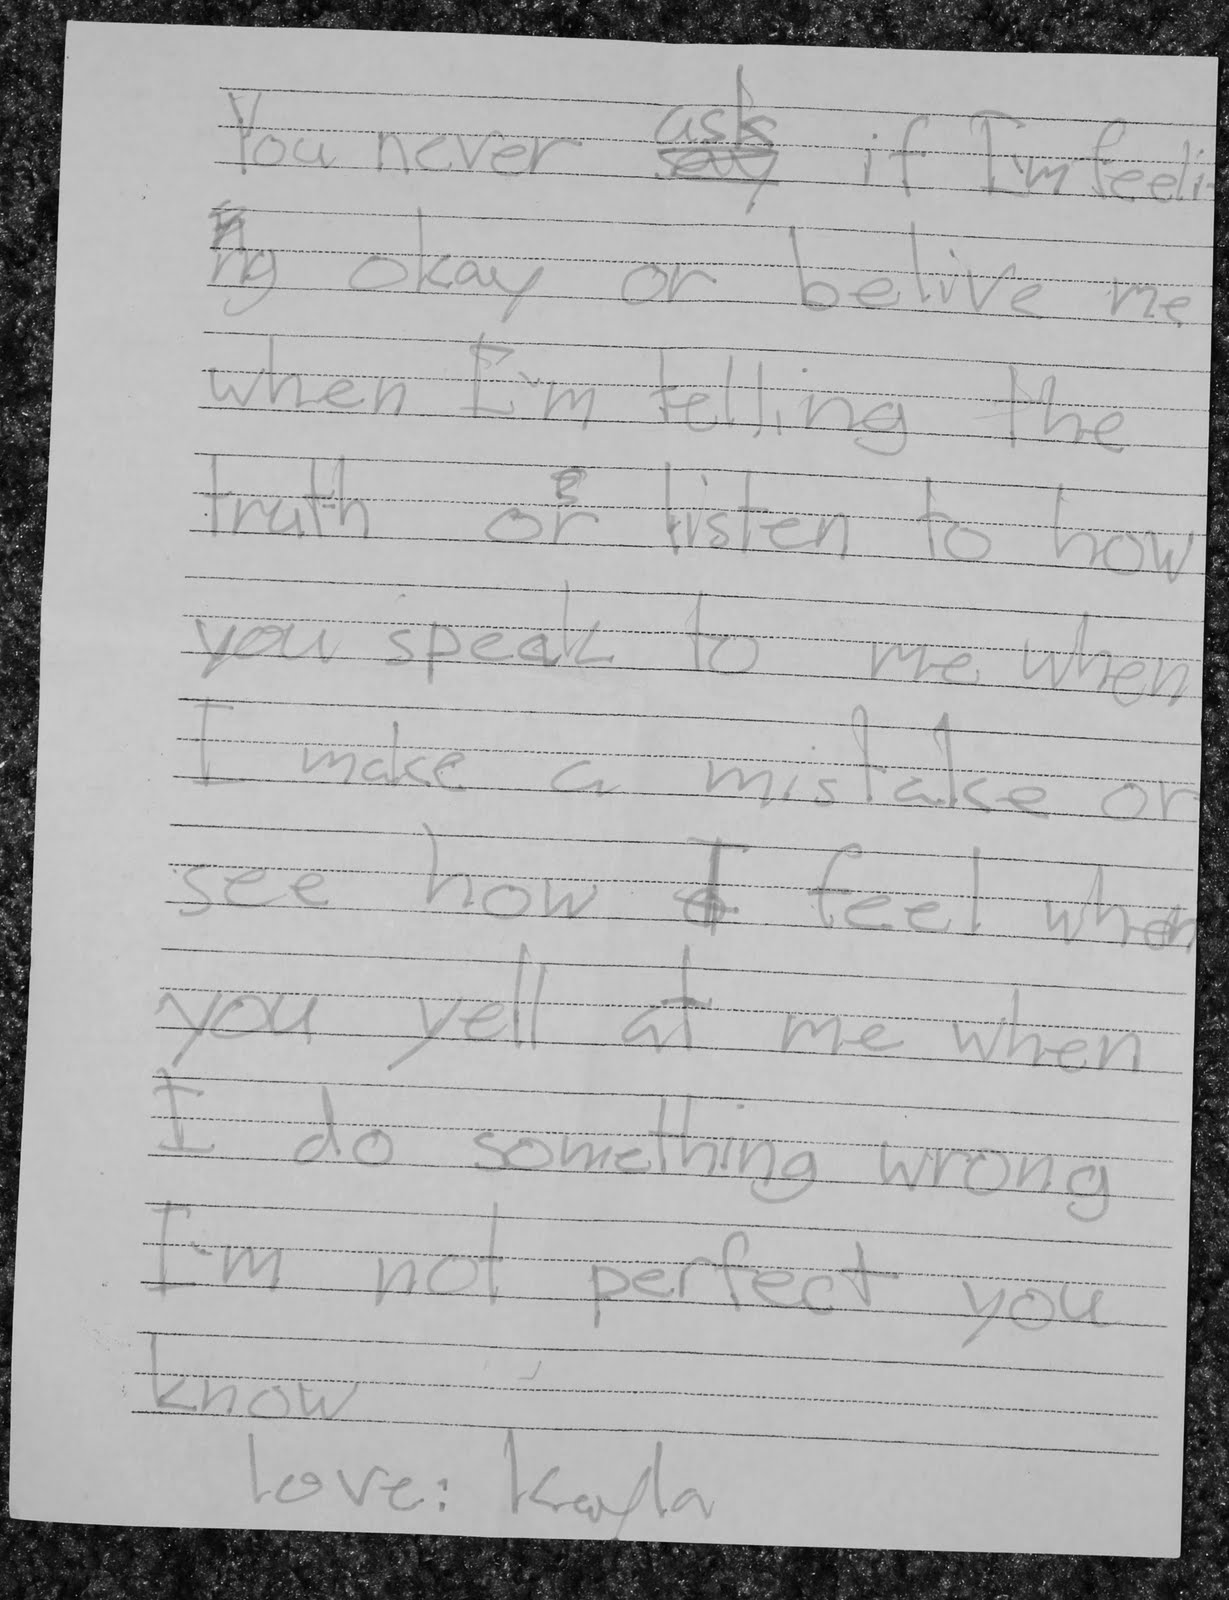 You never ask if I'm feeli-
ng okay or belive me
when I'm telling the
truth or listen to how
you speak to me when
I make a mistake or
see how I feel when
you yell at me when
I do something wrong
I'm not perfect you
know
love: Kayla